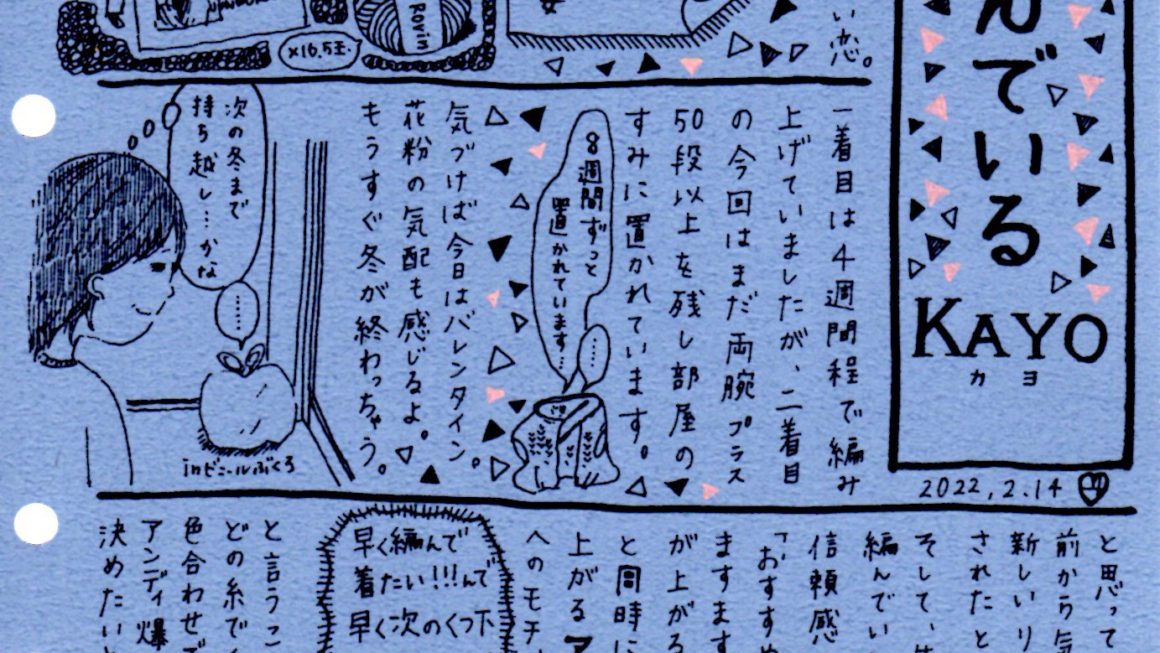 んでいる
KAYO
カヨ
2022.2.14
い恋。
×16.5玉
Rovin
一着目は4週間程で編み
上げていましたが、二着目
の今回はまだ両腕プラス
50段以上を残し部屋の
すみに置かれています。
8週間ずっと
置かれています…
……
気づけば今日はバレンタイン。
花粉の気配も感じるよ。
もうすぐ冬が終わっちゃう。
次の冬まで
持ち越し…かな
……
inビニールぶくろ
と思って
前から気
新しいリ
されたと
そして、
編んでい
信頼感
「おすすめ
ますます
が上がる
と同時に
上がるア
へのモチ
早く編んで
着たい!!!んで
早く次のくつ下
と言うこ
どの糸で
色合わせで
アンディ爆
決めたいと